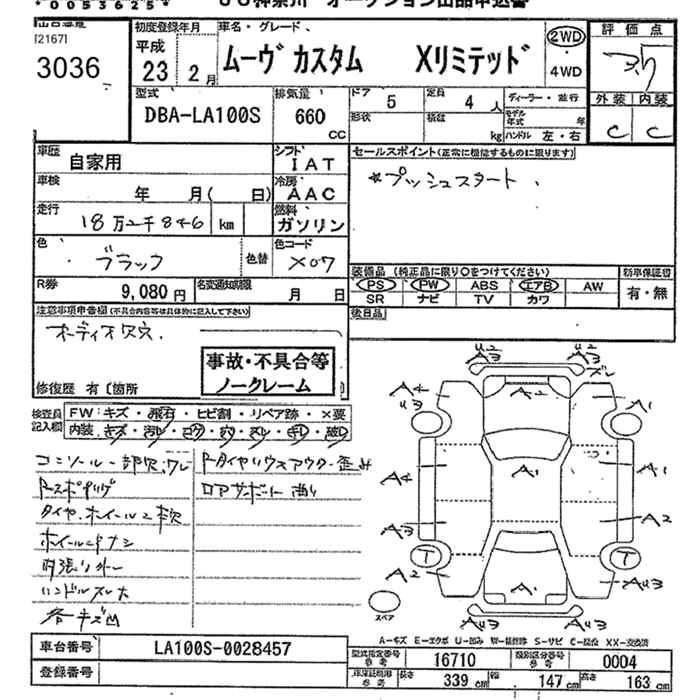 3036
初度登録年月
平成
23 2 月
車名・グレード
ムーヴ カスタム Xリミテッド
2WD
・
4WD
評価点
3.5
外装 内装
C C
型式
DBA-LA100S
排気量
660
CC
ドア
5
定員
4 人
ディーラー・並行
形状
積載
kg
モデル年式 年
ハンドル 左・右
車歴
自家用
シフト
IAT
車検
年 月( 日)
冷房
AAC
走行
18万2千846 km
燃料
ガソリン
色
ブラック
色替
色コード
X07
R券
9,080 円
名変通知期限
月 日
セールスポイント(正常に機能するものに限ります)
*プッシュスタート
装備品 (純正品に限り○をつけてください)
新車保証書
PS PW ABS エアB AW
有・無
SR ナビ TV カワ
後日品
注意事項申告欄(不具合内容等は具体的に記入して下さい)
オーディオ欠
事故・不具合等
ノークレーム
修復歴 有〔箇所
検査員
記入欄
FW:キズ・飛石・ヒビ割・リペア跡・×要
内装:キズ・汚レ・コゲ・穴・スレ・キレ・破レ
コンソール一部欠、ワレ
タイヤ、ホイール2本欠
ホイールナットナシ
内張りハガレ
ハンドルスレ大
各キズ凹
U2
A3
U2
A3
ズレ
A4
U3
A2
A1
A4
A1
A1
A3
A2
T
T
A2
A1
AU3
AU3
AU3
スペア
A-キズ E-エクボ U-凹み W-補修跡 S-サビ C-腐食 XX-交換済
車台番号
LA100S-0028457
登録番号
型式指定番号
参考
16710
類別区分番号
参考
0004
車庫証明用
参考
長さ
339 cm
幅
147 cm
高さ
163 cm